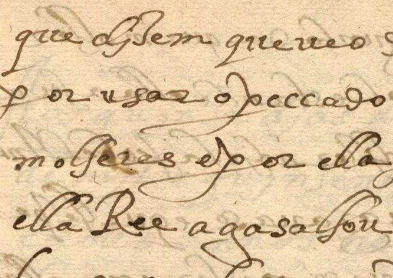 que disem que veo
por usar o peccado
molheres e por ella
ella Ree agasalhou